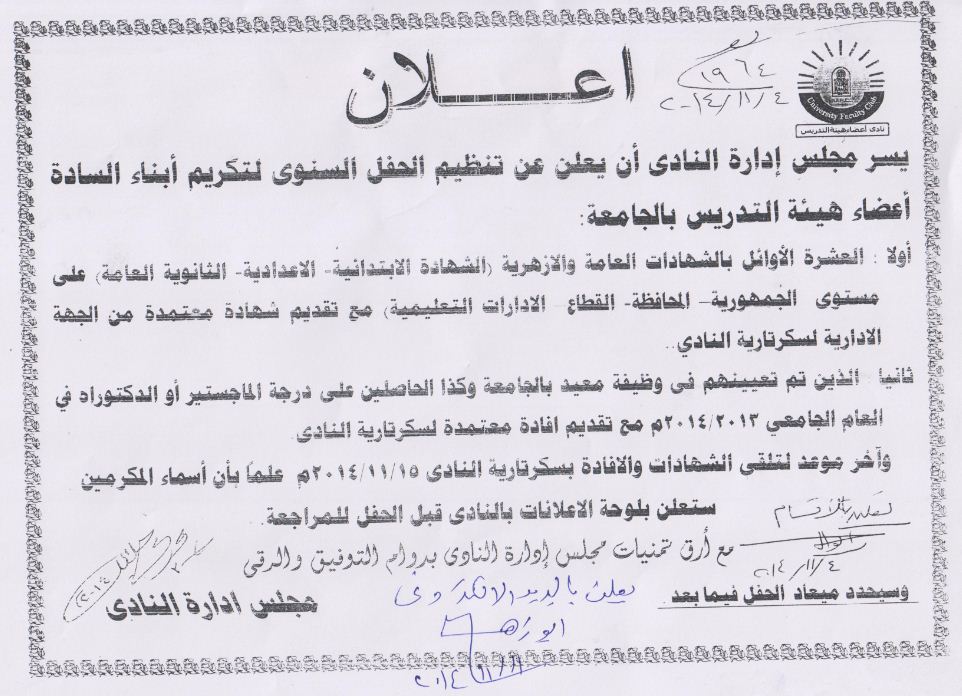 ١٩٦٤
٢٠١٤/١١/٤
University Faculty Club
نادى أعضاء هيئة التدريس
اعـــلان
يسر مجلس إدارة النادى أن يعلن عن تنظيم الحفل السنوى لتكريم أبناء السادة
أعضاء هيئة التدريس بالجامعة:
أولا : العشرة الأوائل بالشهادات العامة والازهرية (الشهادة الابتدائية- الاعدادية- الثانوية العامة) على
مستوى الجمهورية- المحافظة- القطاع- الادارات التعليمية) مع تقديم شهادة معتمدة من الجهة
الادارية لسكرتارية النادي..
ثانيا : الذين تم تعيينهم فى وظيفة معيد بالجامعة وكذا الحاصلين على درجة الماجستير أو الدكتوراه في
العام الجامعي ٢٠١٤/٢٠١٣م مع تقديم افادة معتمدة لسكرتارية النادى.
وآخر موعد لتلقى الشهادات والافادة بسكرتارية النادى ٢٠١٤/١١/١٥م علما بأن أسماء المكرمين
ستعلن بلوحة الاعلانات بالنادى قبل الحفل للمراجعة.
مع أرق تمنيات مجلس إدارة النادى بدوام التوفيق والرقى
٢٠١٤/١١/٤
وسيحدد ميعاد الحفل فيما بعد
مجلس ادارة النادى
يعلن بالبريد الالكترونى